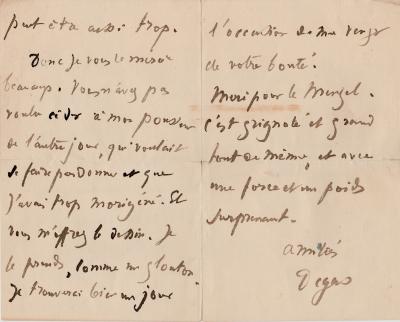 peut être aussi trop.
Donc je vous le
beaucoup. Vous n'avez pas
voulu céder à mon
de l'autre jour, qui voulait
se faire pardonner et que
j'avais trop morigéné. Et
vous m'offrez le dessin. Je
le prends, comme un glouton.
Je trouverai bien un jour
l'occasion de me venger
de votre bonté.
Merci pour le Menzel.
c'est grignoté et grand
tout de même, et avec
une force et un poids
surprenant.
amitiés
Degas